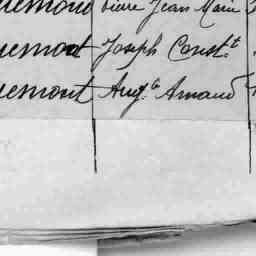 uemond Pierre Jean Marie
uemont Joseph Const.t
uemont Aug.te Armand